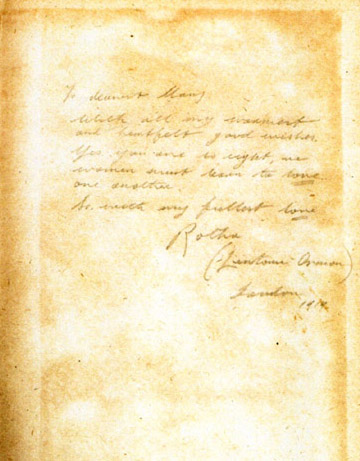 To dearest Mary
With all my warmest
and heartfelt good wishes.
Yes you are so right, we
women must learn to love
one another.
So with my fullest love
Rotha
(Lintorn-Orman)
London